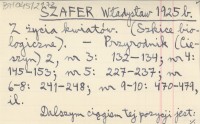 SZAFER Władysław 1925 b.
Z życia kwiatów. (Szkice bio-
logiczne). — Przyrodnik (Cie-
szyn) 2, nr 3: 132–134; nr 4:
145–155; nr 5: 227–237; nr
6–8: 241–248; nr 9–10: 470–479,
il.
Dalszym ciągiem tej pozycji jest: